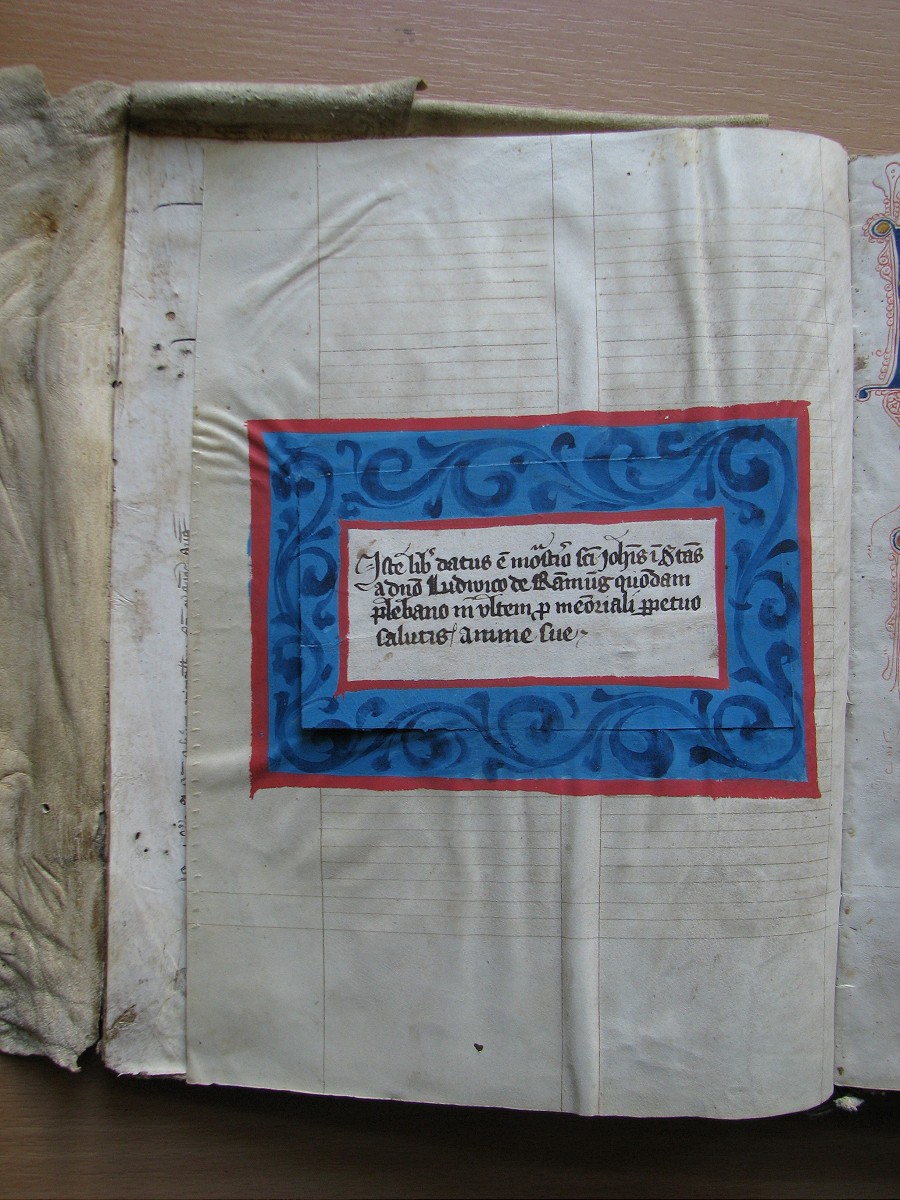 Iste lib⁹ datus ē moñstio sc̄i Joh̄is ī Stās
a dn̄o Ludwico de Ramūg quōdam
plebano in vltem p meōriali ꝑpetuo
salutis anime sue